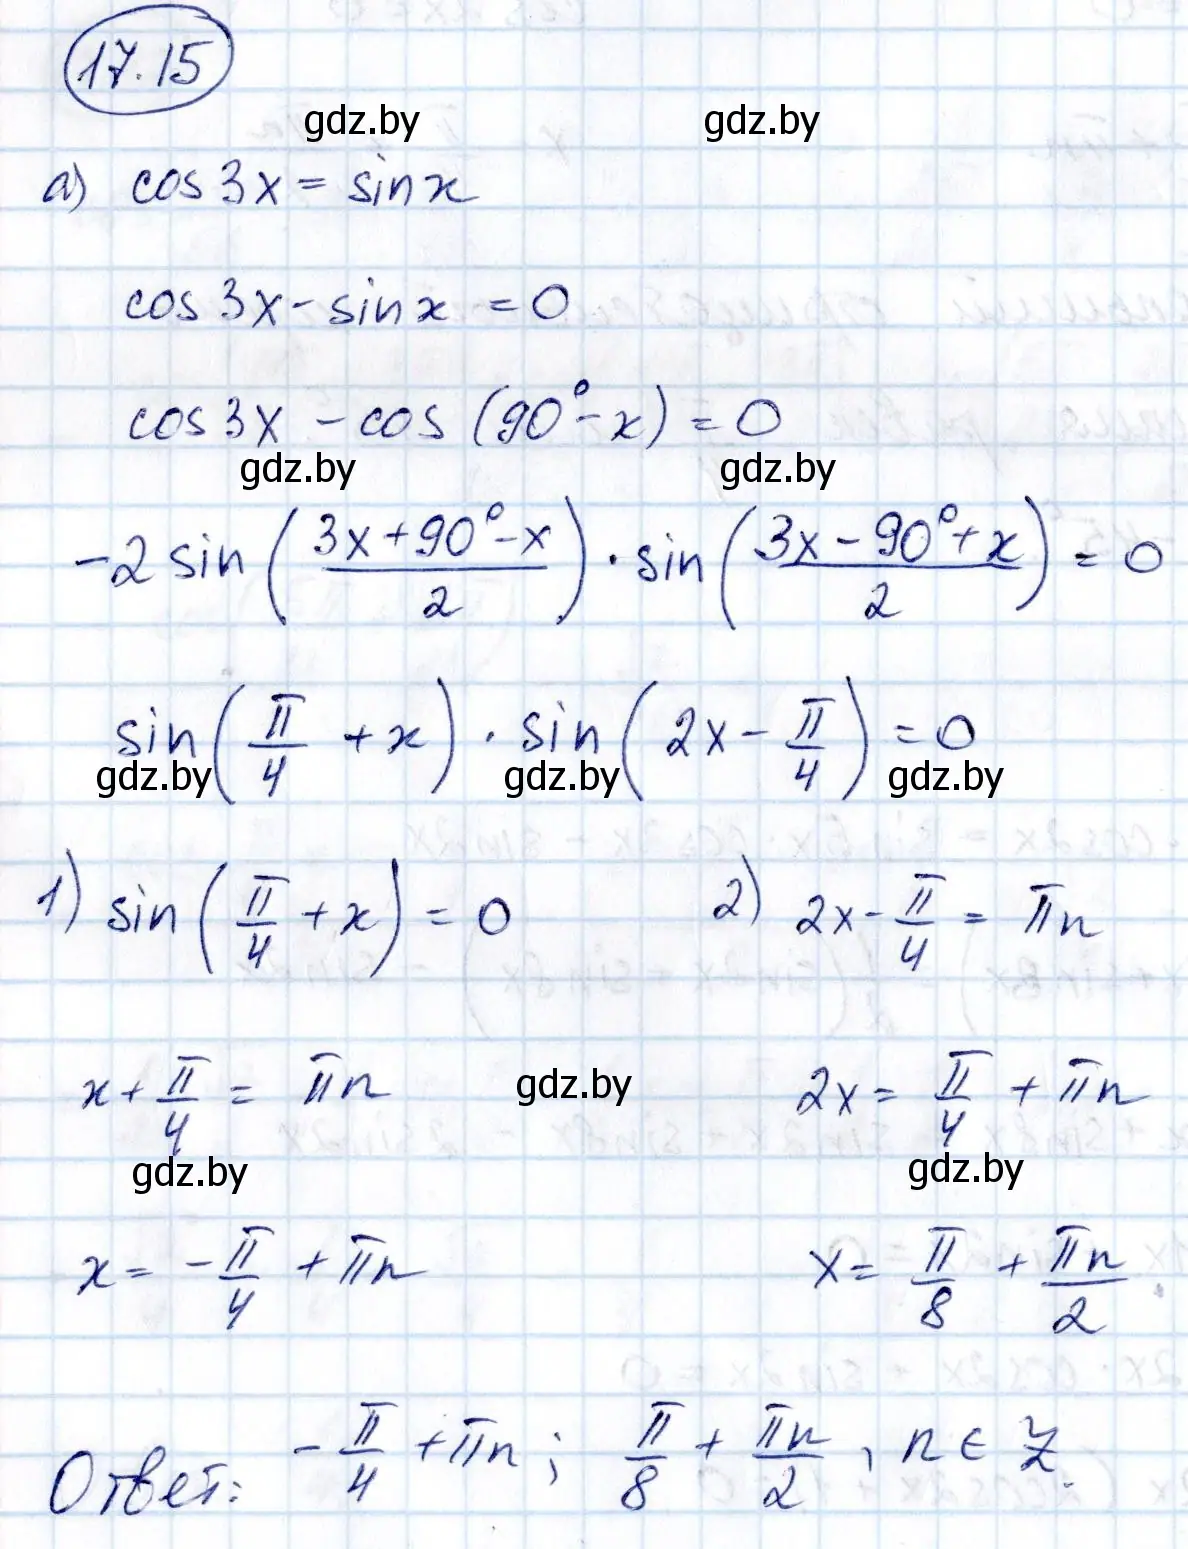 17.15
gdz.by gdz.by
а) cos3x = sinx
cos3x - sinx = 0
cos3x - cos(90° - x) = 0
gdz.by gdz.by
-2 sin((3x + 90° - x)/2) · sin((3x - 90° + x)/2) = 0
sin(π/4 + x) · sin(2x - π/4) = 0
gdz.by gdz.by gdz.by
1) sin(π/4 + x) = 0 2) 2x - π/4 = πn
x + π/4 = πn gdz.by 2x = π/4 + πn
gdz.by gdz.by
x = -π/4 + πn x = π/8 + πn/2.
Ответ: -π/4 + πn; π/8 + πn/2, n ∈ Z.